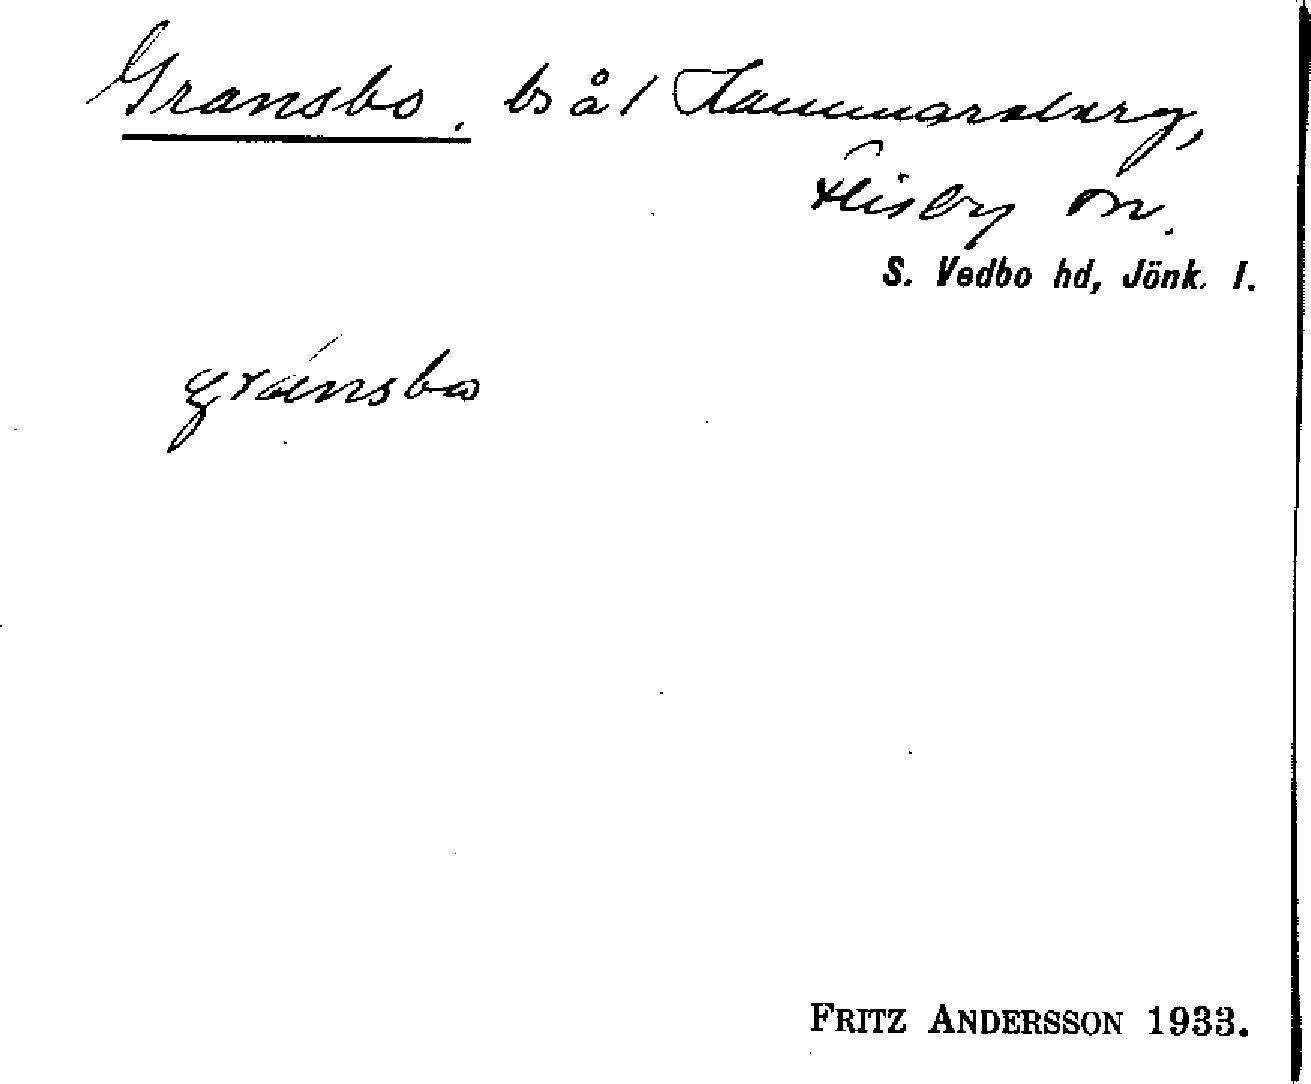 Gransbo. bs å/ Hammarsberg,
Flisby sn.
S. Vedbo hd, Jönk. l.
gránsbo
FRITZ ANDERSSON 1933.